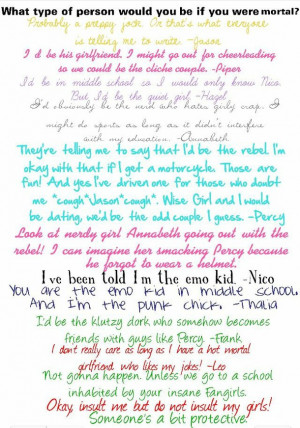 What type of person would you be if you were mortal?
Probably a preppy jock. Or that's what everyone
is telling me to write. -Jason
I'd be his girlfriend. I might go out for cheerleading
so we could be the cliche couple. -Piper
I'd be in middle school so I would only know Nico.
But I'd be the quiet girl. -Hazel
I'd obviously be the nerd who hates girly crap. I
might do sports as long as it didn't interfere
with my education. -Annabeth
They're telling me to say that I'd be the rebel. I'm
okay with that if I get a motorcycle. Those are
fun! And yes I've driven one for those who doubt
me *cough*Jason*cough*. Wise Girl and I would
be dating, we'd be the odd couple I guess. -Percy
Look at nerdy girl Annabeth going out with the
rebel! I can imagine her smacking Percy because
he forgot to wear a helmet.
I've been told I'm the emo kid. -Nico
You are the emo kid in middle school.
And I'm the punk chick. -Thalia
I'd be the klutzy dork who somehow becomes
friends with guys like Percy. -Frank
I don't really care as long as I have a hot mortal
girlfriend who likes my jokes! -Leo
Not gonna happen. Unless we go to a school
inhabited by your insane Fangirls.
Okay, insult me but do not insult my girls!
Someone's a bit protective.